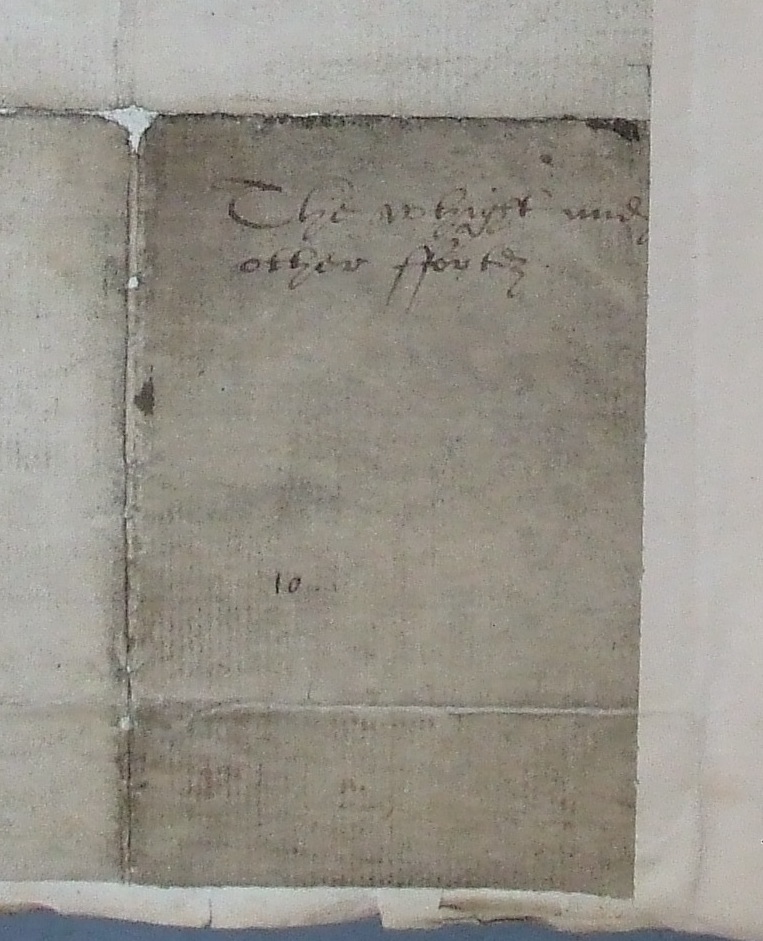 The whight and
other ffortꝭ
10